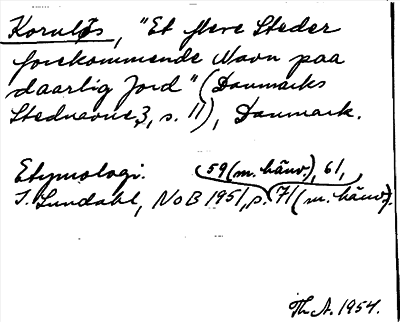 Kornløs, "Et flere Steder
forekommende Navn paa
daarlig Jord" (Danmarks
Stednavne, 3, s. 11), Danmark.
Etymologi.
59 (m. hänv.), 61,
I. Lundahl, NoB 1951, s. 71 (m. hänv.).
Th. A. 1954.